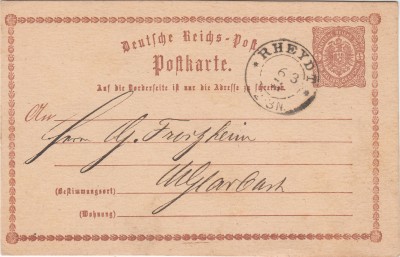 Deutsche Reichs-Post
Postkarte.
Auf die Vorderseite ist nur die Adresse zu schreiben.
* RHEYDT *
6 3
An
Herrn G.
M Gladbach
(Bestimmungsort)
(Wohnung)